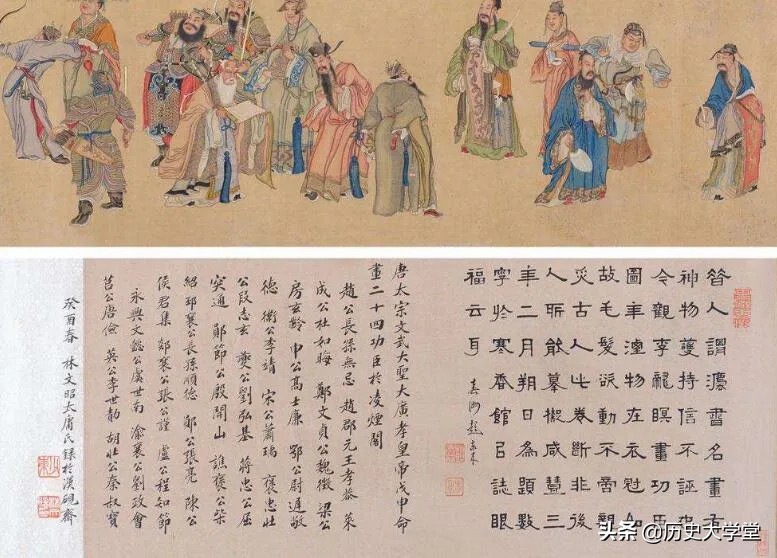 昔人謂灋書名畫有
神物護持信不誣也
今觀李龍瞑畫功臣
圖年湮物在衣冠如
故毛髮欲動不啻親
炙古人此卷斷非後
人所能摹擬咸豐三
年二月朔日為題數
字於寒香館㠯誌眼
福云耳
唐太宗文武大聖大廣孝皇帝戊申命
畫二十四功臣於凌煙閣
趙公長孫無忌 趙郡元王孝恭 萊
成公杜如晦 鄭文貞公魏徵 梁公
房玄齡 申公高士廉 鄂公尉遲敬
德 衛公李靖 宋公蕭瑀 褒忠壯
公段志玄 夔公劉弘基 蔣忠公屈
突通 鄖節公殷開山 譙襄公柴
紹 邳襄公長孫順德 鄖公張亮 陳公
侯君集 郯襄公張公謹 盧公程知節
永興文懿公虞世南 渝襄公劉政會
莒公唐儉 英公李世勣 胡壯公秦叔寶
癸酉春 林文昭太膚氏錄於漢硯齋
头条 @历史大学堂